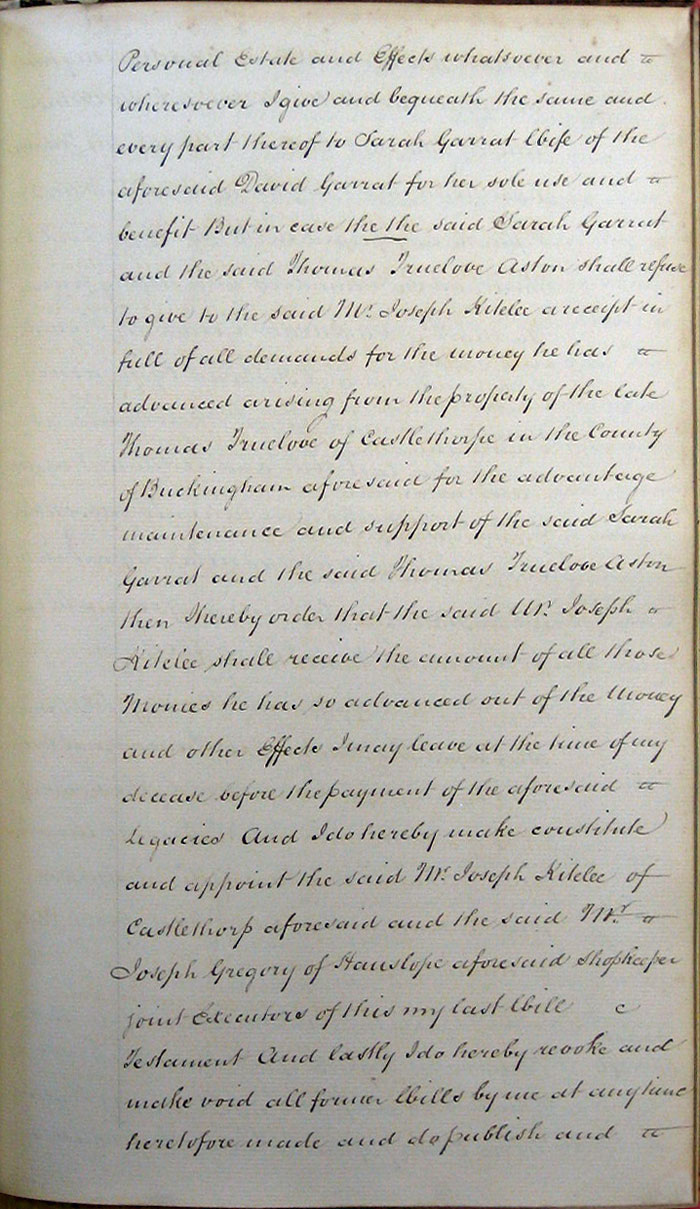 Personal Estate and Effects whatsoever and
wheresoever I give and bequeath the same and
every part thereof to Sarah Garrat Wife of the
aforesaid David Garrat for her sole use and
benefit But in case the the said Sarah Garrat
and the said Thomas Truelove Aston shall refuse
to give to the said Mr. Joseph Kitelee a receipt in
full of all demands for the money he has
advanced arising from the property of the late
Thomas Truelove of Castlethorpe in the County
of Buckingham aforesaid for the advantage
maintenance and support of the said Sarah
Garrat and the said Thomas Truelove Aston
then I hereby order that the said Mr. Joseph
Kitelee shall receive the amount of all those
Monies he has so advanced out of the Money
and other Effects I may leave at the time of my
decease before the payment of the aforesaid
Legacies And I do hereby make constitute
and appoint the said Mr. Joseph Kitelee of
Castlethorp aforesaid and the said Mr.
Joseph Gregory of Hanslope aforesaid Shopkeeper
joint Executors of this my last Will
Testament And lastly I do hereby revoke and
make void all former Wills by me at any time
heretofore made and do publish and